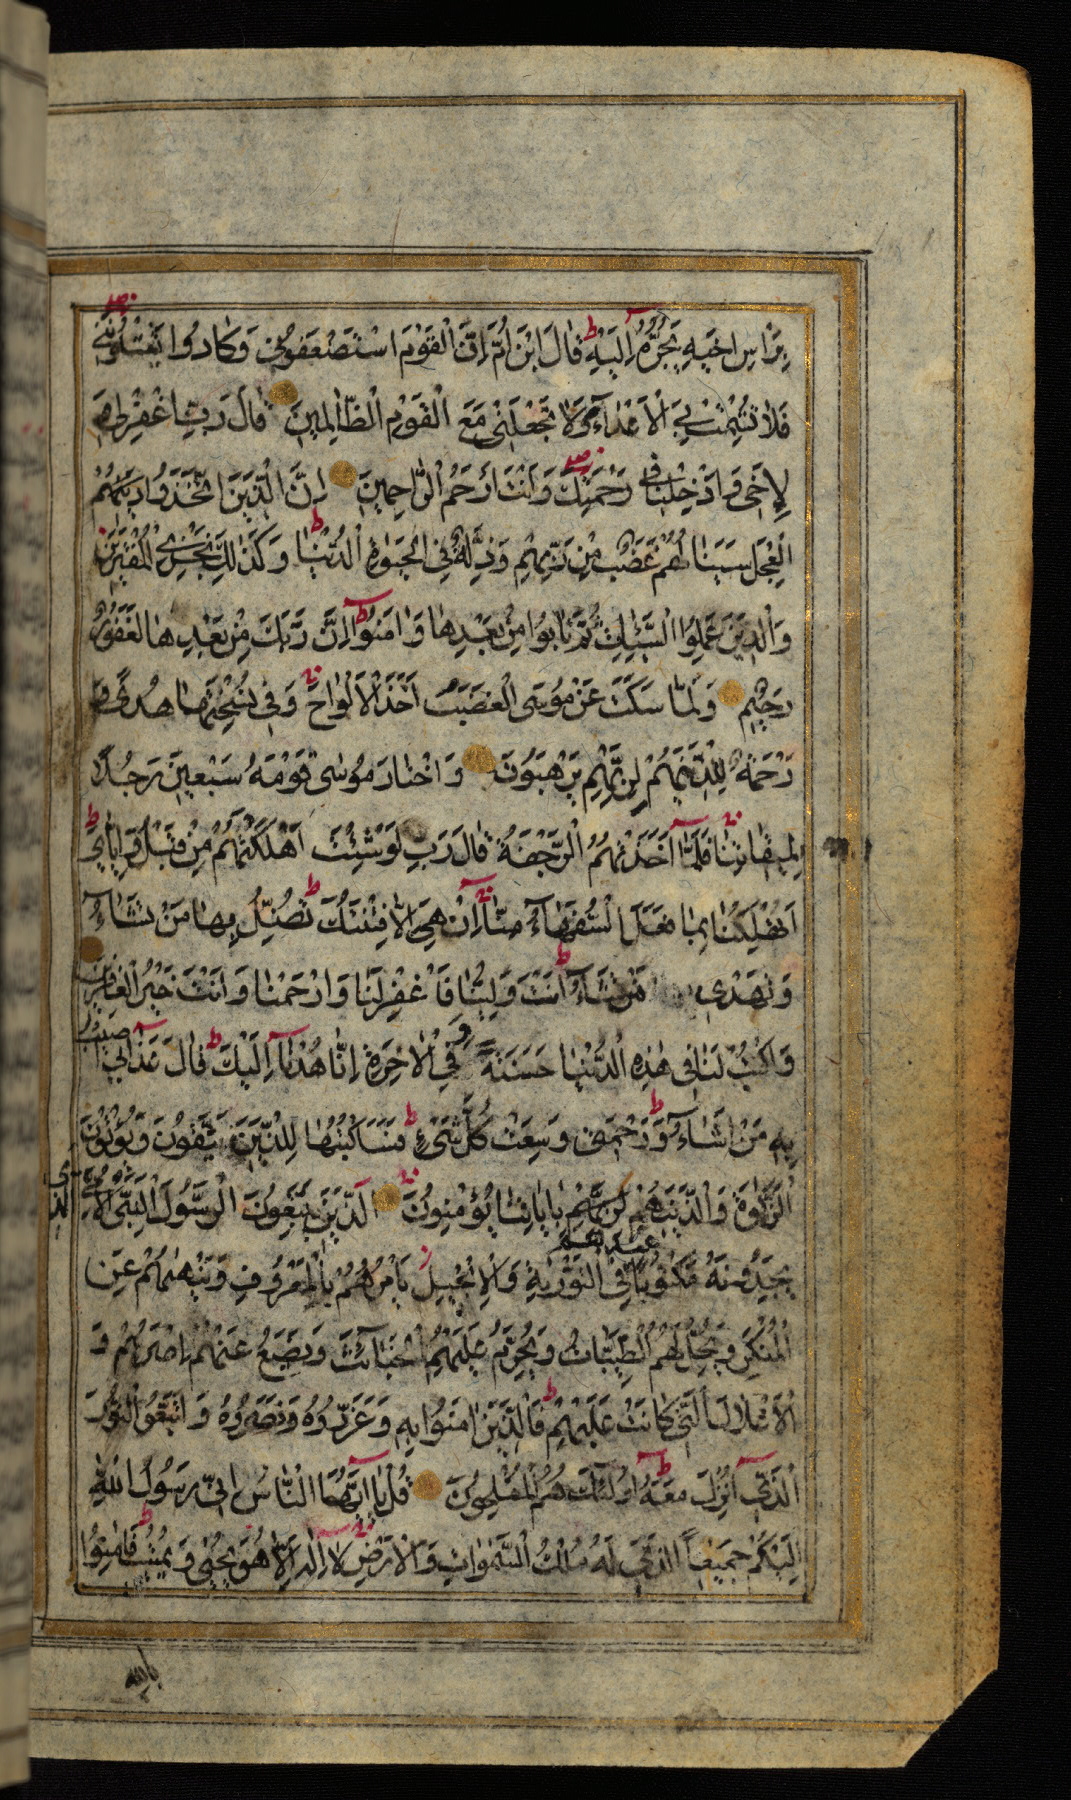 بِرَأْسِ اَخِيهِ يَجُرُّهُ اِلَيْهِ قَالَ ابْنَ اُمَّ اِنَّ الْقَوْمَ اسْتَضْعَفُونِي وَكَادُوا يَقْتُلُونَنِي
فَلَا تُشْمِتْ بِيَ الْاَعْدَآءَ وَلَا تَجْعَلْنِي مَعَ الْقَوْمِ الظَّالِمِينَ قَالَ رَبِّ اغْفِرْ لِي وَ
لِاَخِي وَاَدْخِلْنَا فِي رَحْمَتِكَ وَاَنْتَ اَرْحَمُ الرَّاحِمِينَ اِنَّ الَّذِينَ اتَّخَذُوا
الْعِجْلَ سَيَنَالُهُمْ غَضَبٌ مِنْ رَبِّهِمْ وَذِلَّةٌ فِي الْحَيٰوةِ الدُّنْيَا وَكَذٰلِكَ نَجْزِي الْمُفْتَرِينَ
وَالَّذِينَ عَمِلُوا السَّيِّئَاتِ ثُمَّ تَابُوا مِنْ بَعْدِهَا وَاٰمَنُوٓا اِنَّ رَبَّكَ مِنْ بَعْدِهَا لَغَفُورٌ
رَحِيمٌ وَلَمَّا سَكَتَ عَنْ مُوسَى الْغَضَبُ اَخَذَ الْاَلْوَاحَ وَفِي نُسْخَتِهَا هُدًى وَ
رَحْمَةٌ لِلَّذِينَ هُمْ لِرَبِّهِمْ يَرْهَبُونَ وَاخْتَارَ مُوسٰى قَوْمَهُ سَبْعِينَ رَجُلًا
لِمِيقَاتِنَا فَلَمَّآ اَخَذَتْهُمُ الرَّجْفَةُ قَالَ رَبِّ لَوْ شِئْتَ اَهْلَكْتَهُمْ مِنْ قَبْلُ وَاِيَّايَ
اَتُهْلِكُنَا بِمَا فَعَلَ السُّفَهَآءُ مِنَّآ اِنْ هِيَ اِلَّا فِتْنَتُكَ تُضِلُّ بِهَا مَنْ تَشَآءُ
وَتَهْدِي مَنْ تَشَآءُ اَنْتَ وَلِيُّنَا فَاغْفِرْ لَنَا وَارْحَمْنَا وَاَنْتَ خَيْرُ الْغَافِرِينَ
وَاكْتُبْ لَنَا فِي هٰذِهِ الدُّنْيَا حَسَنَةً وَفِي الْاٰخِرَةِ اِنَّا هُدْنَآ اِلَيْكَ قَالَ عَذَابِيٓ اُصِيبُ
بِهِ مَنْ اَشَآءُ وَرَحْمَتِي وَسِعَتْ كُلَّ شَيْءٍ فَسَاَكْتُبُهَا لِلَّذِينَ يَتَّقُونَ وَيُؤْتُونَ
الزَّكٰوةَ وَالَّذِينَ هُمْ بِاٰيَاتِنَا يُؤْمِنُونَ الَّذِينَ يَتَّبِعُونَ الرَّسُولَ النَّبِيَّ الْاُمِّيَّ الَّذِي
يَجِدُونَهُ مَكْتُوبًا عِنْدَهُمْ فِي التَّوْرٰيةِ وَالْاِنْجِيلِ يَاْمُرُهُمْ بِالْمَعْرُوفِ وَيَنْهٰيهُمْ عَنِ
الْمُنْكَرِ وَيُحِلُّ لَهُمُ الطَّيِّبَاتِ وَيُحَرِّمُ عَلَيْهِمُ الْخَبَآئِثَ وَيَضَعُ عَنْهُمْ اِصْرَهُمْ وَ
الْاَغْلَالَ الَّتِي كَانَتْ عَلَيْهِمْ فَالَّذِينَ اٰمَنُوا بِهِ وَعَزَّرُوهُ وَنَصَرُوهُ وَاتَّبَعُوا النُّورَ
الَّذِيٓ اُنْزِلَ مَعَهُٓ اُولٰٓئِكَ هُمُ الْمُفْلِحُونَ قُلْ يَآ اَيُّهَا النَّاسُ اِنِّي رَسُولُ اللّٰهِ
اِلَيْكُمْ جَمِيعًا الَّذِي لَهُ مُلْكُ السَّمٰوَاتِ وَالْاَرْضِ لَآ اِلٰهَ اِلَّا هُوَ يُحْيِي وَيُمِيتُ فَاٰمِنُوا
بالله